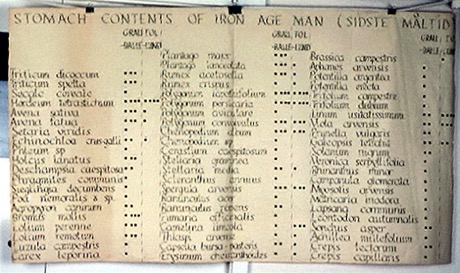 STOMACH CONTENTS OF IRON AGE MAN (SIDSTE MÅLTID)
GRAU TOL
-BALLE-LUND
Triticum dicoccum
Triticum spelta
Secale cereale
Hordeum tetrastichum
Avena sativa
Avena fatua
Setaria viridis
Echinochloa crusgalli
Phleum sp
Holcus lanatus
Deschampsia caespitosa
Phragmites communis
Sieglingia decumbens
Poa nemoralis & sp.
Agropyron caninum
Bromus mollis
Lolium perenne
Lolium remotum
Luzula campestris
Carex leporina
GRAU TOL
-BALLE-LUND
Plantago major
Plantago lanceolata
Rumex acetosella
Rumex crispus
Polygonum lapathifolium
Polygonum persicaria
Polygonum aviculare
Polygonum convolvulus
Chenopodium album
Chenopodium sp
Cerastium caespitosum
Stellaria graminea
Stellaria media
Scleranthus annuus
Spergula arvensis
Ranunculus acer
Ranunculus repens
Fumaria officinalis
Camelina linicola
Thlaspi arvense
Capsella bursa-pastoris
Erysimum cheiranthoides
GRAU TOL
-BALLE-LUND
Brassica campestris
Aphanes arvensis
Potentilla argentea
Potentilla erecta
Trifolium campestre
Trifolium dubium
Linum usitatissimum
Viola arvensis
Prunella vulgaris
Galeopsis tetrahit
Solanum nigrum
Veronica serpyllifolia
Rhinanthus minor
Campanula glomerata
Myosotis arvensis
Matricaria inodora
Lapsana communis
Leontodon autumnalis
Sonchus asper
Achillea millefolium
Crepis tectorum
Crepis capillaris